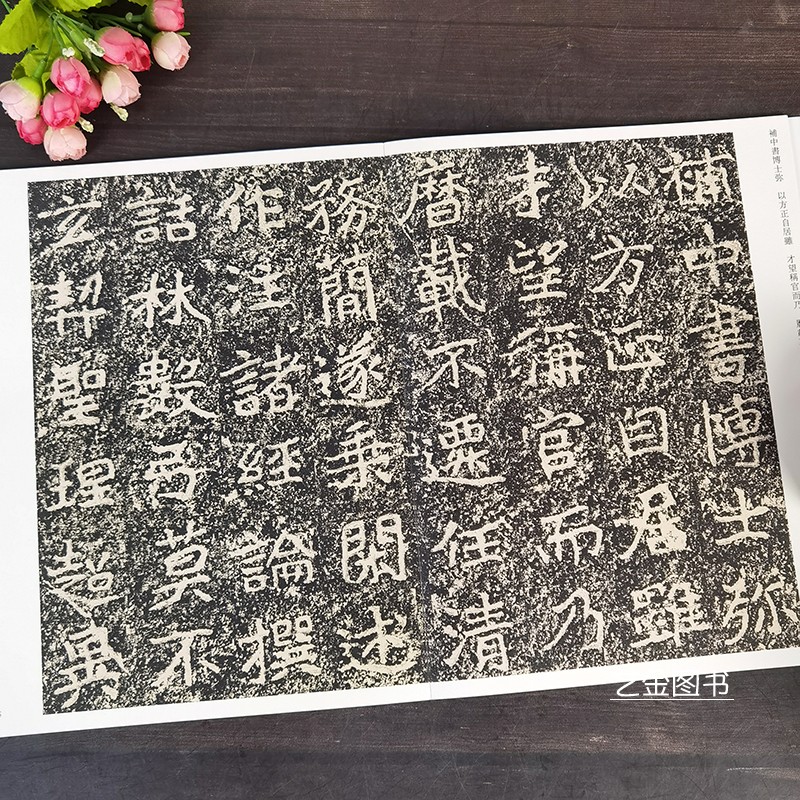 補中書博士弥
以方正自居雖
才望稱官而乃
曆載不遷任清
務簡遂乘閑述
作注諸經論撰
話林數卷莫不
玄契聖理超異
補中書博士弥　以方正自居雖　才望稱官而乃
艺金图书